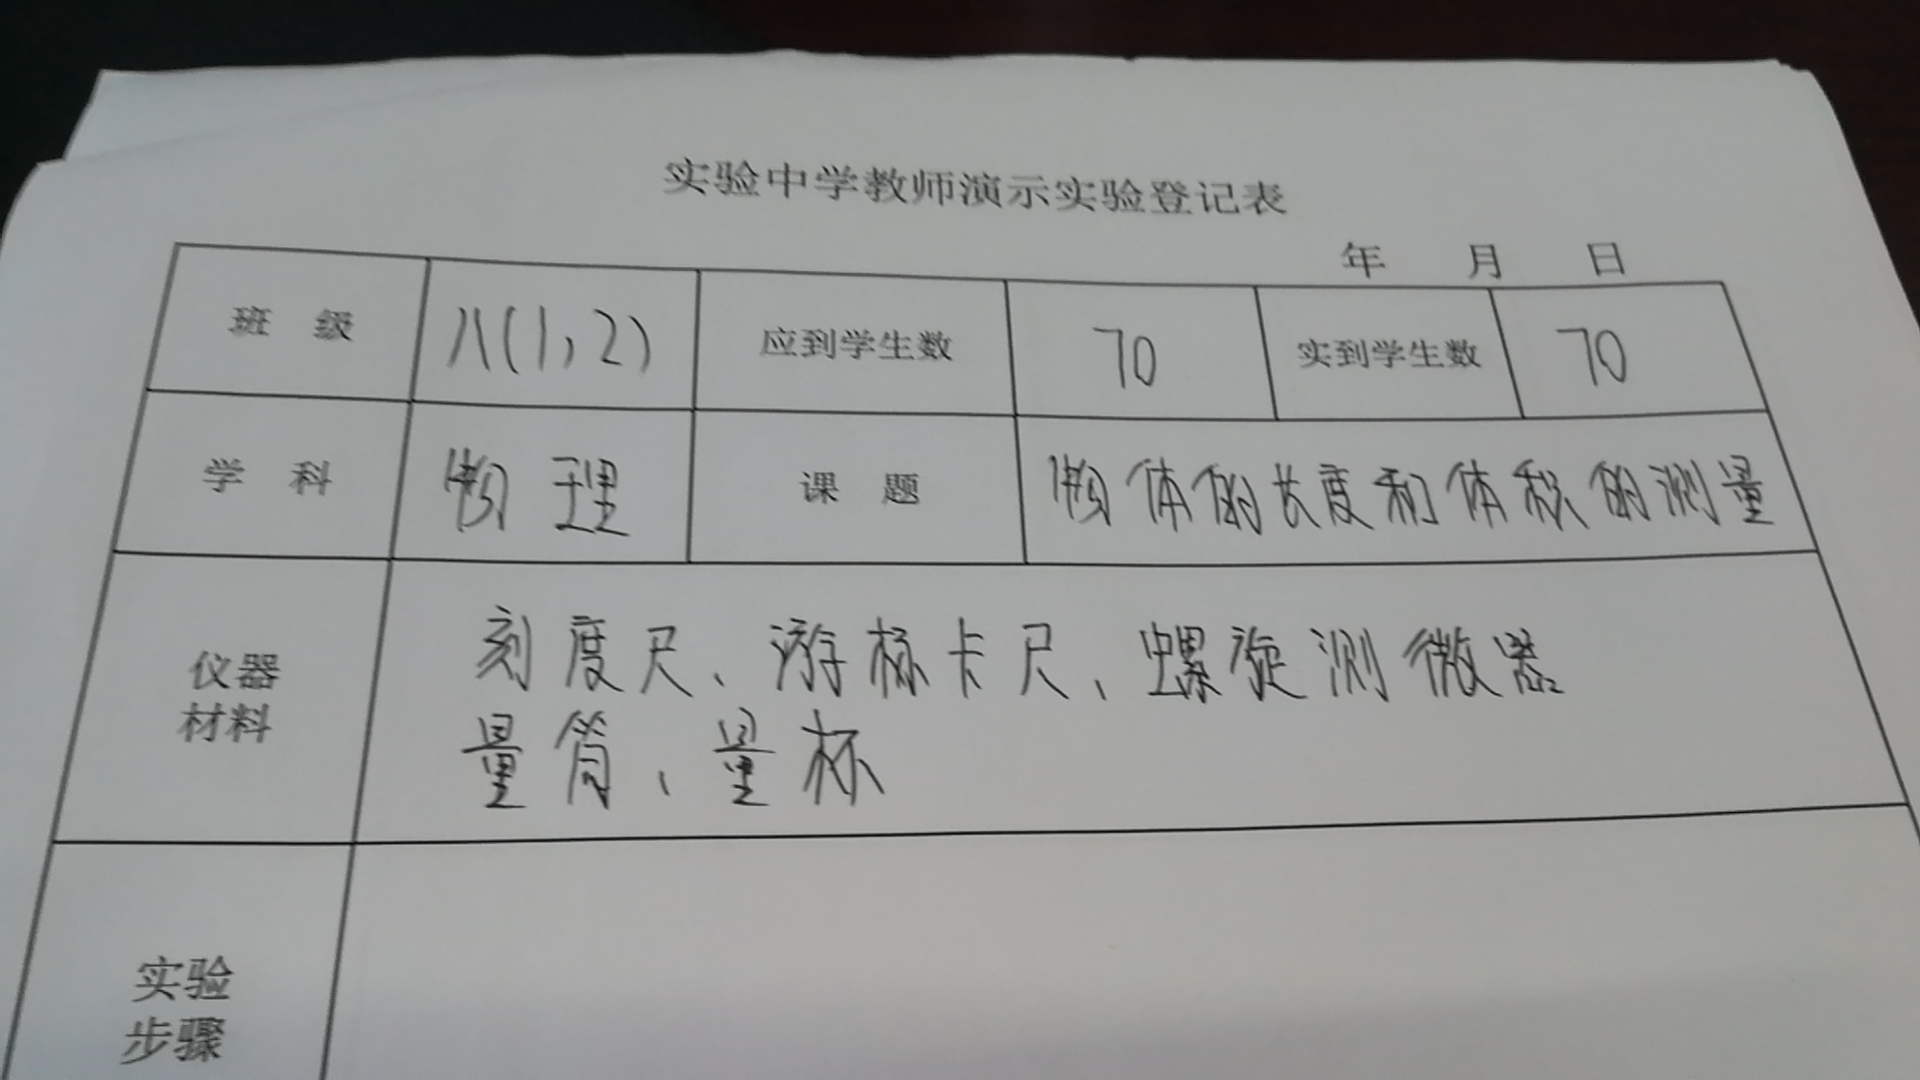 实验中学教师演示实验登记表
年 月 日
班 级 八(1,2) 应到学生数 70 实到学生数 70
学 科 物理 课 题 物体的长度和体积的测量
仪器
材料
刻度尺、游标卡尺、螺旋测微器
量筒、量杯
实验
步骤